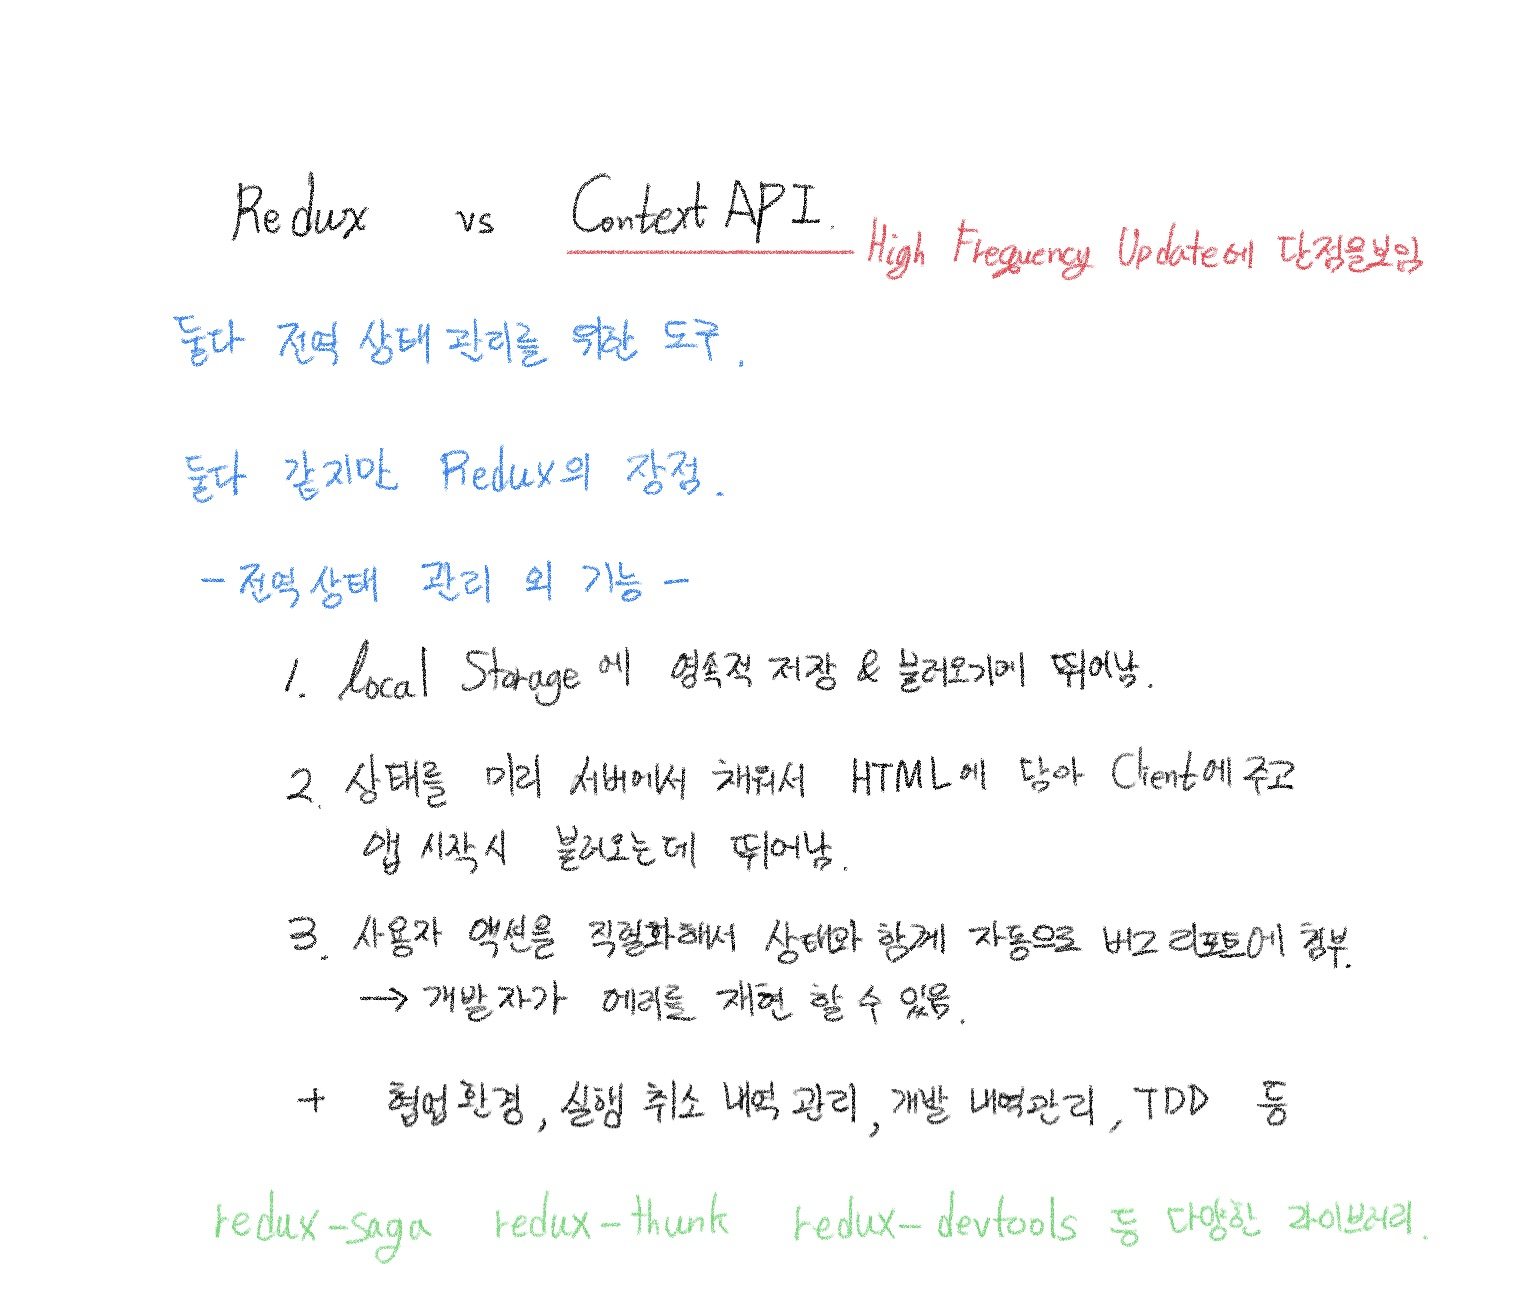 Redux vs Context API.
High Frequency Update에 단점을보임
둘다 전역 상태 관리를 위한 도구.
둘다 같지만 Redux의 장점.
- 전역상태 관리 외 기능 -
1. local Storage에 영속적 저장 & 불러오기에 뛰어남.
2. 상태를 미리 서버에서 채워서 HTML에 담아 Client에 주고
앱 시작시 불러오는데 뛰어남.
3. 사용자 액션을 직렬화해서 상태와 함께 자동으로 버그 리포트에 첨부.
→ 개발자가 에러를 재현 할 수 있음.
+ 협업환경, 실행 취소 내역 관리, 개발 내역관리, TDD 등
redux-saga redux-thunk redux-devtools 등 다양한 라이브러리.